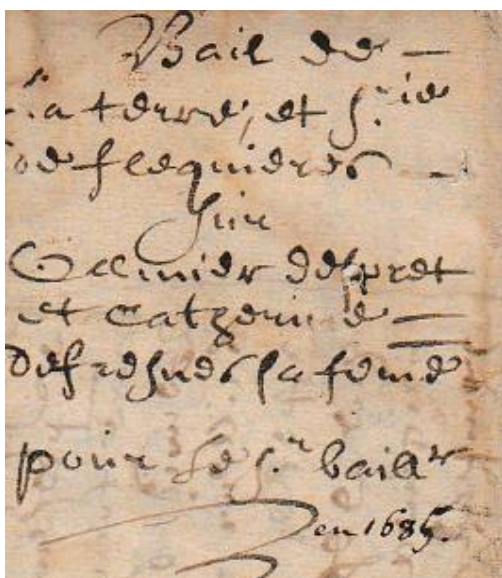 Bail de
la terre, et S.rie
de flequieres
sur
despret
et Catherine
defresnes sa feme
pour le S.r baill.r
en 1685.